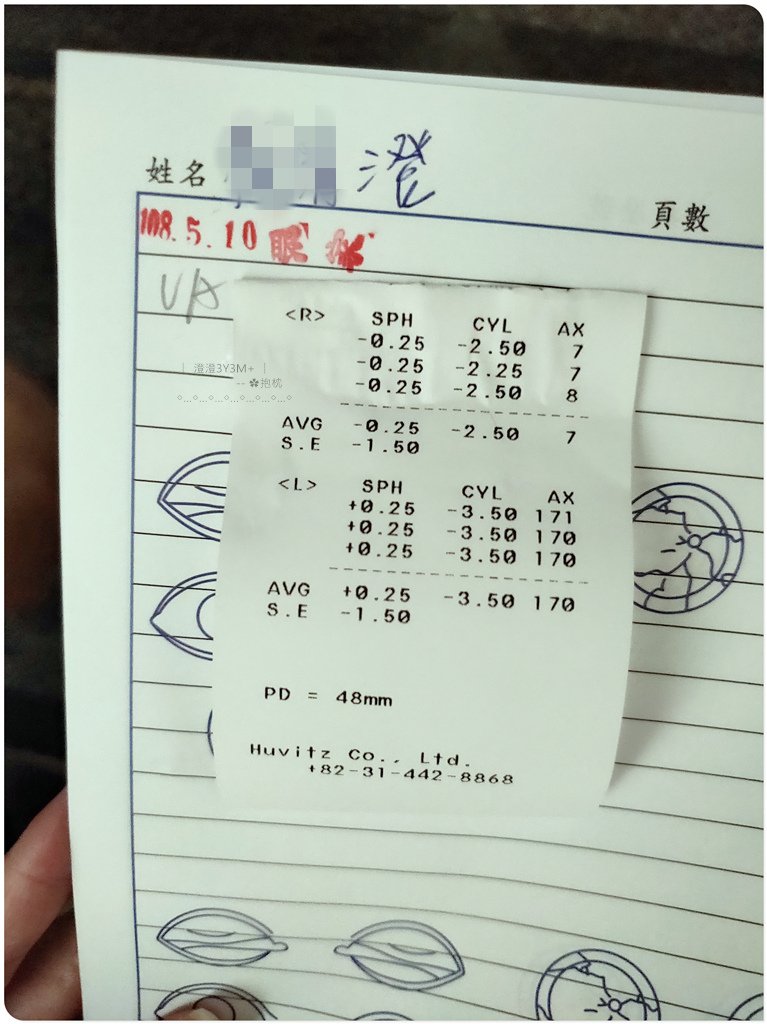 姓名 澄
頁數
108.5.10 眼
VA
| 澄澄3Y3M+ |
-- ✿抱枕
○...○...○...○...○...○...○
<R> SPH CYL AX
-0.25 -2.50 7
-0.25 -2.25 7
-0.25 -2.50 8
AVG -0.25 -2.50 7
S.E -1.50
<L> SPH CYL AX
+0.25 -3.50 171
+0.25 -3.50 170
+0.25 -3.50 170
AVG +0.25 -3.50 170
S.E -1.50
PD = 48mm
Huvitz Co., Ltd.
+82-31-442-8868